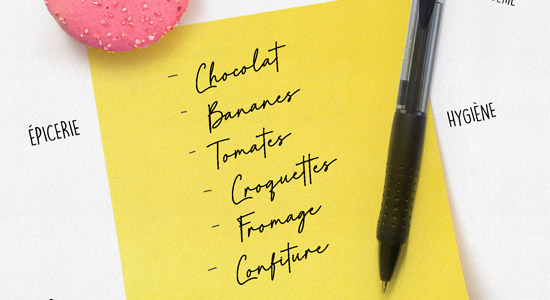 ÉPICERIE
- Chocolat
- Bananes
- Tomates
- Croquettes
- Fromage
- Confiture
HYGIÈNE